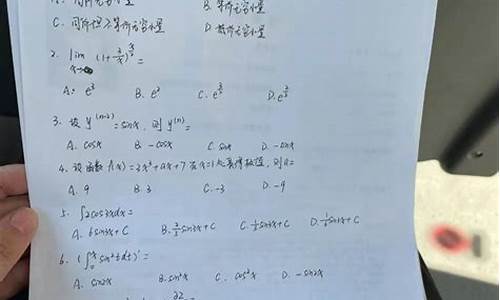 A. 同阶无穷小量 B. 等价无穷小量
C. 同阶但不等价无穷小量 D.
2. lim (1+ =
A. e³ B. e² C. D.
3. 设 y⁽ⁿ⁻²⁾=sinx, 则 y⁽ⁿ⁾=
A. cosx B. -cosx C. sinx D. -sinx
4. 设函数 f(x)=2x³+ax+7 在x=1处取得极值, 则a=
A. 9 B. 3 C. -3 D. -9
5. ∫2cos3xdx=
A. 6sin3x+C B. ⅔sin3x+C C. ⅓sin3x+C D. sin3x+C
6. (∫₀ˣsin²tdt)'=
A. sin2x B. sin²x C. cos²x D. -sin2x